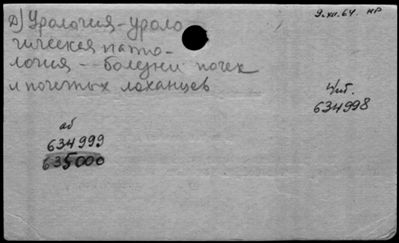 А) Урология-уроло
9.XII.64. НР
гическая пато-
логия - болезни почек
и почечных лоханцев
Чит.
634998
аб
634999
635000